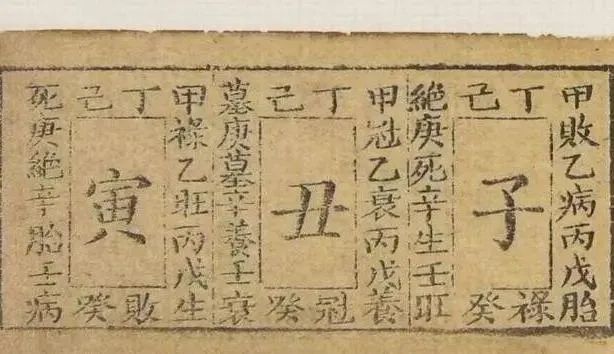 甲敗乙病丙戊胎
丁己
子
絕庚死辛生壬旺
癸祿
甲冠乙衰丙戊養
丁己
丑
墓庚墓辛養壬衰
癸冠
甲祿乙旺丙戊生
丁己
寅
死庚絕辛胎壬病
癸敗